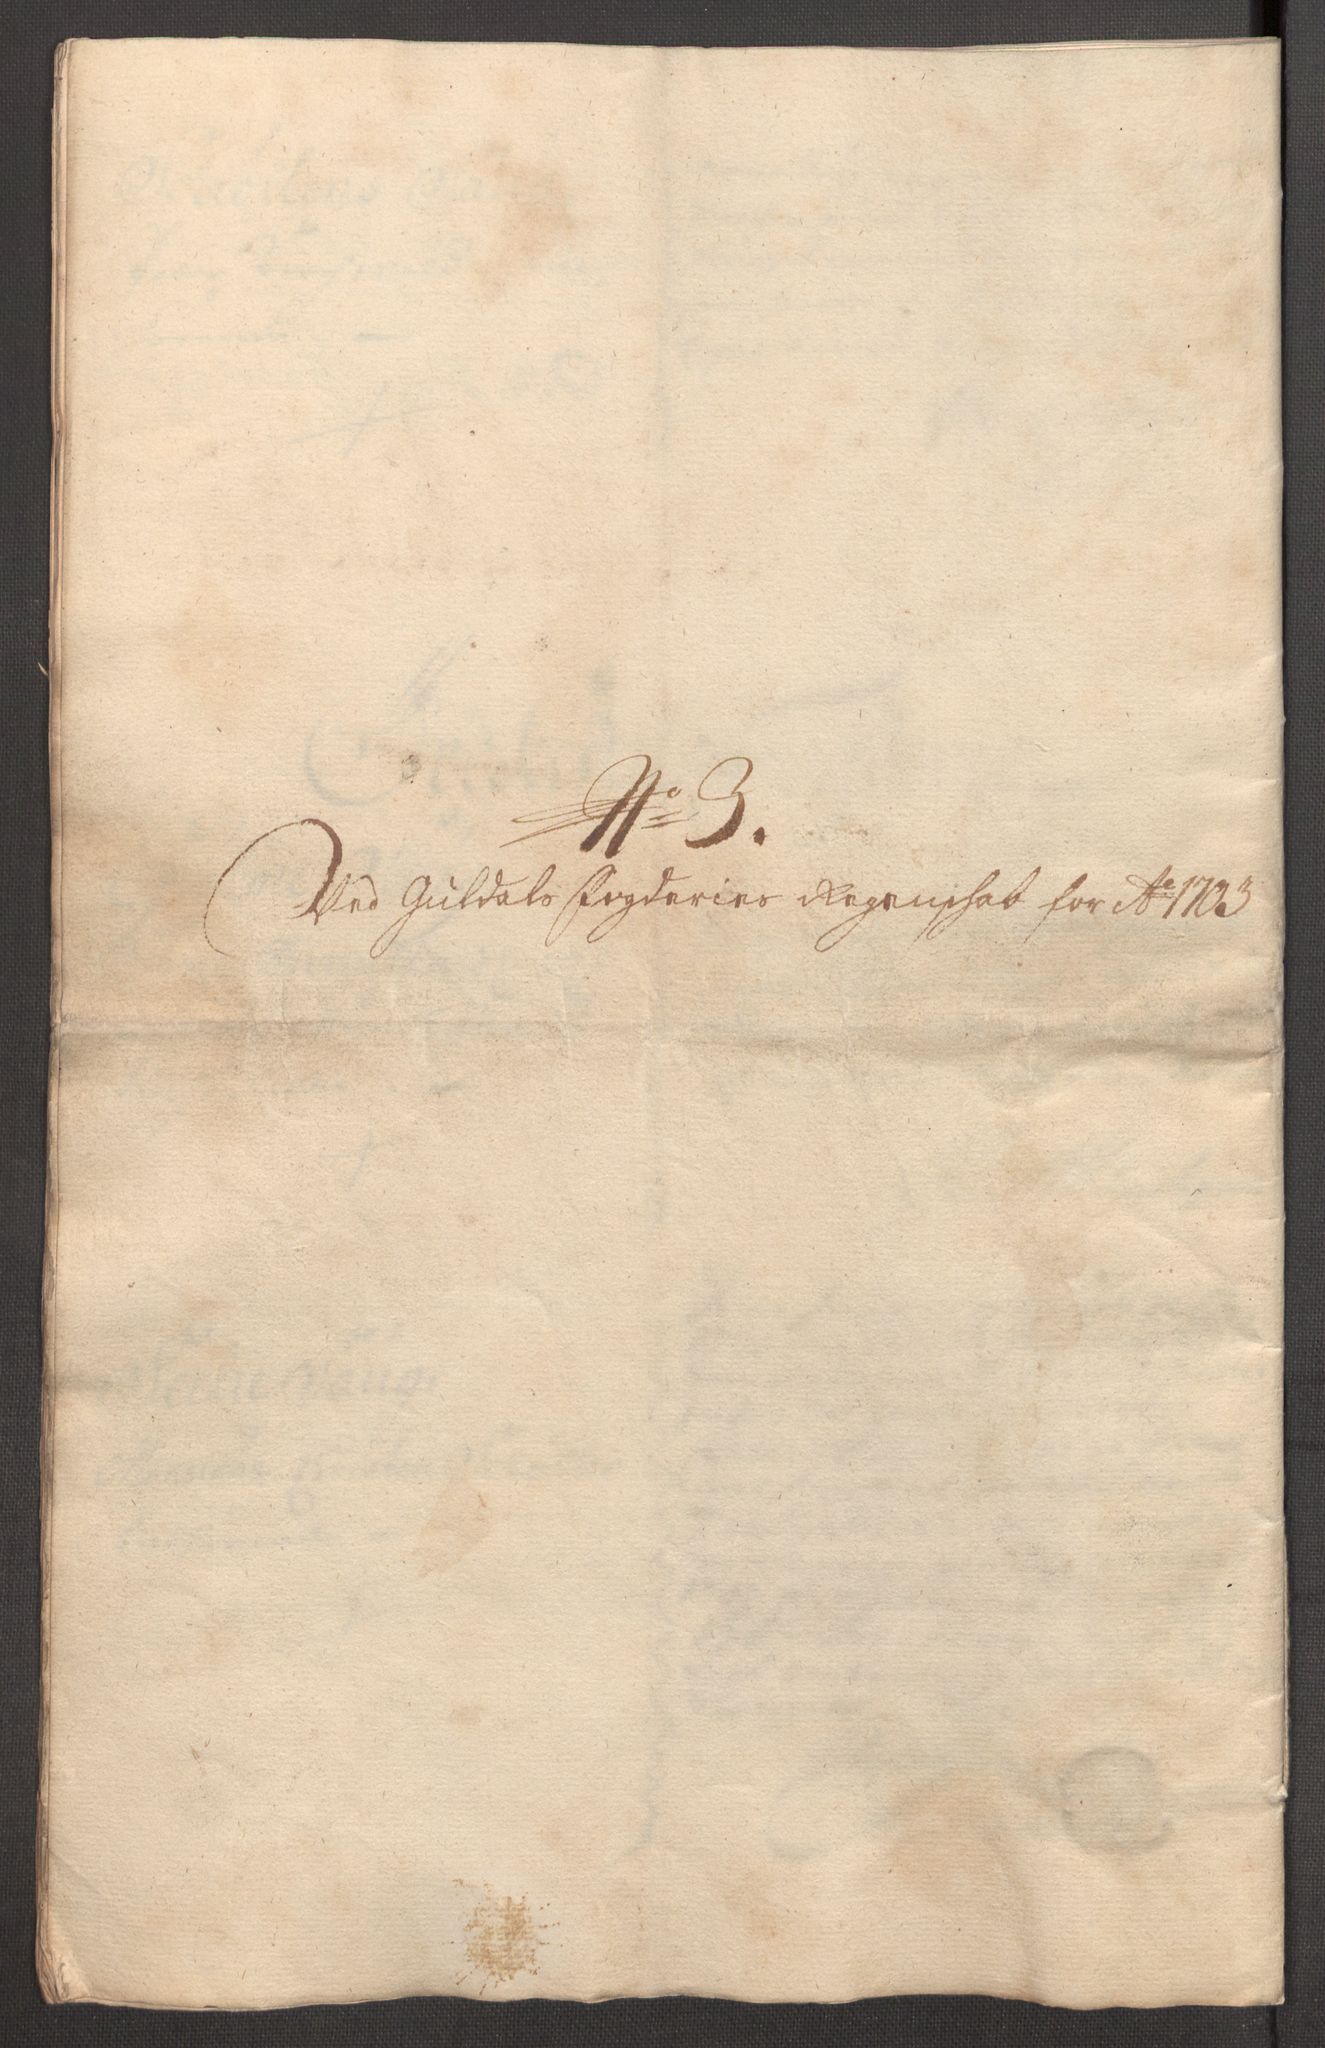 No 3.
Ved Guldals Fogderies Regenskab for Ao 1703